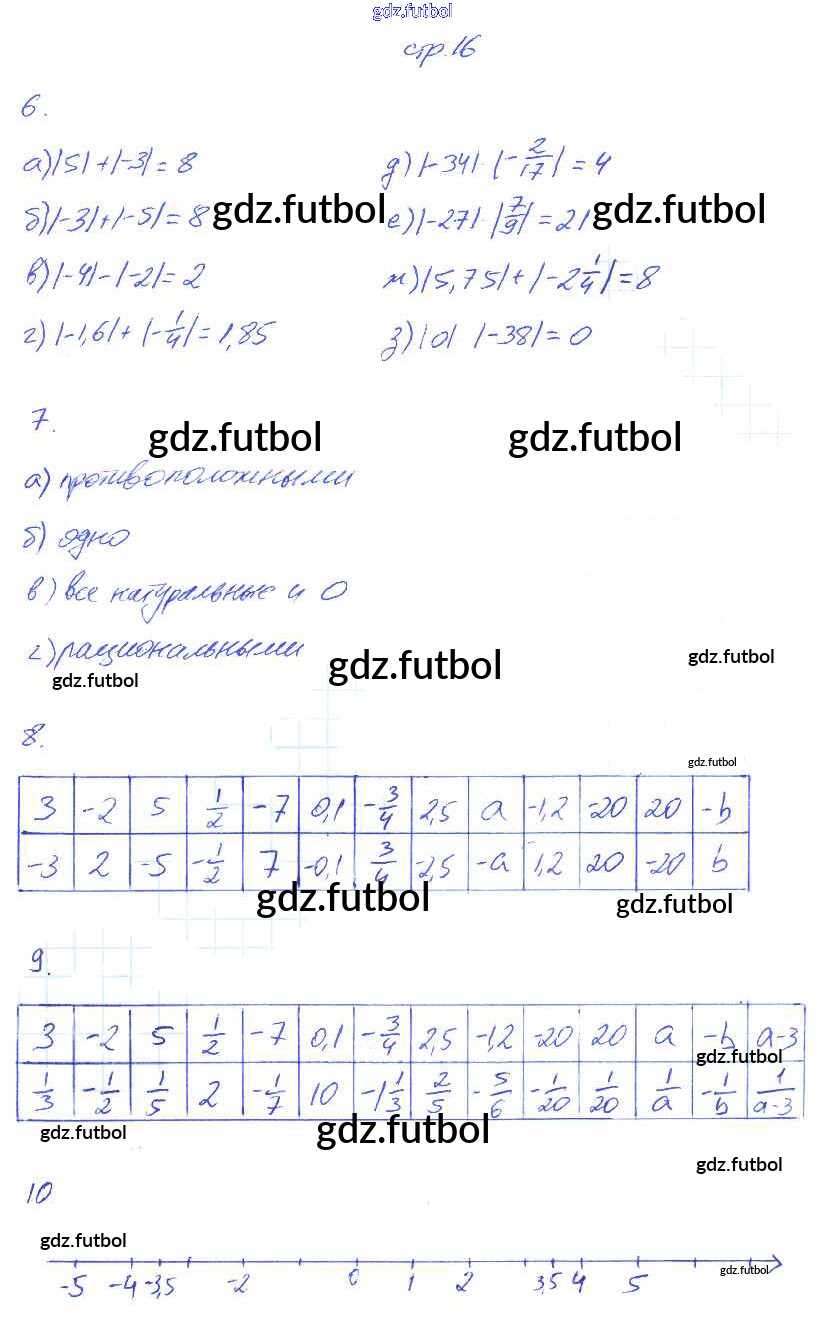 gdz.futbol
стр.16
6.
а) |5| + |-3| = 8 д) |-34| · |-2/17| = 4
б) |-3| + |-5| = 8 gdz.futbol е) |-27| · |7/9| = 21 gdz.futbol
в) |-4| - |-2| = 2 ж) |5,75| + |-2 1/4| = 8
г) |-1,6| + |-1/4| = 1,85 з) |0| |-38| = 0
7.
gdz.futbol gdz.futbol
а) противоположными
б) одно
в) все натуральные и 0
г) рациональными
gdz.futbol gdz.futbol gdz.futbol
8.
gdz.futbol
3 -2 5 1/2 -7 0,1 -3/4 2,5 a -1,2 -20 20 -b
-3 2 -5 -1/2 7 -0,1 3/4 -2,5 -a 1,2 20 -20 b
gdz.futbol gdz.futbol
9.
3 -2 5 1/2 -7 0,1 -3/4 2,5 -1,2 -20 20 a -b a-3
gdz.futbol
1/3 -1/2 1/5 2 -1/7 10 -1 1/3 2/5 -5/6 -1/20 1/20 1/a -1/b 1/a-3
gdz.futbol gdz.futbol
gdz.futbol
10
gdz.futbol
-5 -4 -3,5 -2 0 1 2 3,5 4 5 gdz.futbol